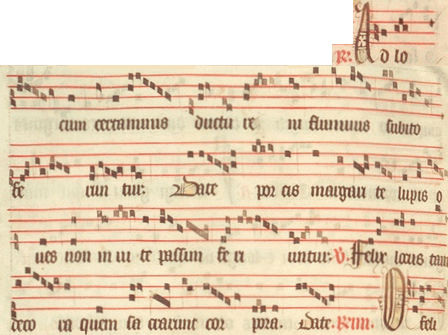 R: Ad lo
cum certaminis ducti re ni fluminis subito
fe run tur. Date por cis margari te lupis o
ues non in ui te passim fe ri untur. V. Felix locus tam
deco ra quem sa crarunt cor pora. Date. R. iiii. O feli